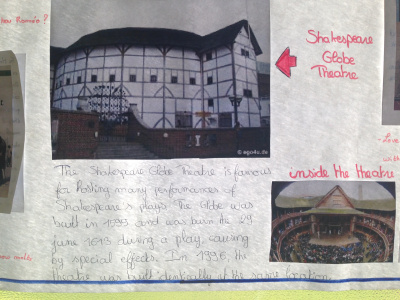 Roméo ?
Shakespeare
Globe
Theatre
© ego4u.de
The Shakespeare Globe theatre is famous
for hosting many performances of
Shakespeare's plays. The Globe was
built in 1599 and was burn the 29
june 1613 during a play, causing
by special effects. In 1996, the
theatre was built identically at the same location.
inside the theatre